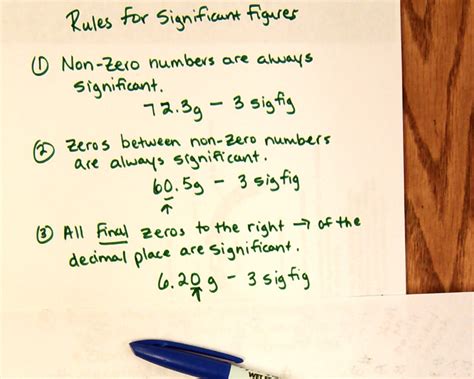 Rules for Significant Figures
① Non-Zero numbers are always
significant.
72.3g – 3 sigfig
② Zeros between non-zero numbers
are always significant.
60.5g – 3 sigfig
↑
③ All Final zeros to the right → of the
decimal place are significant.
6.20g – 3 sigfig
↑